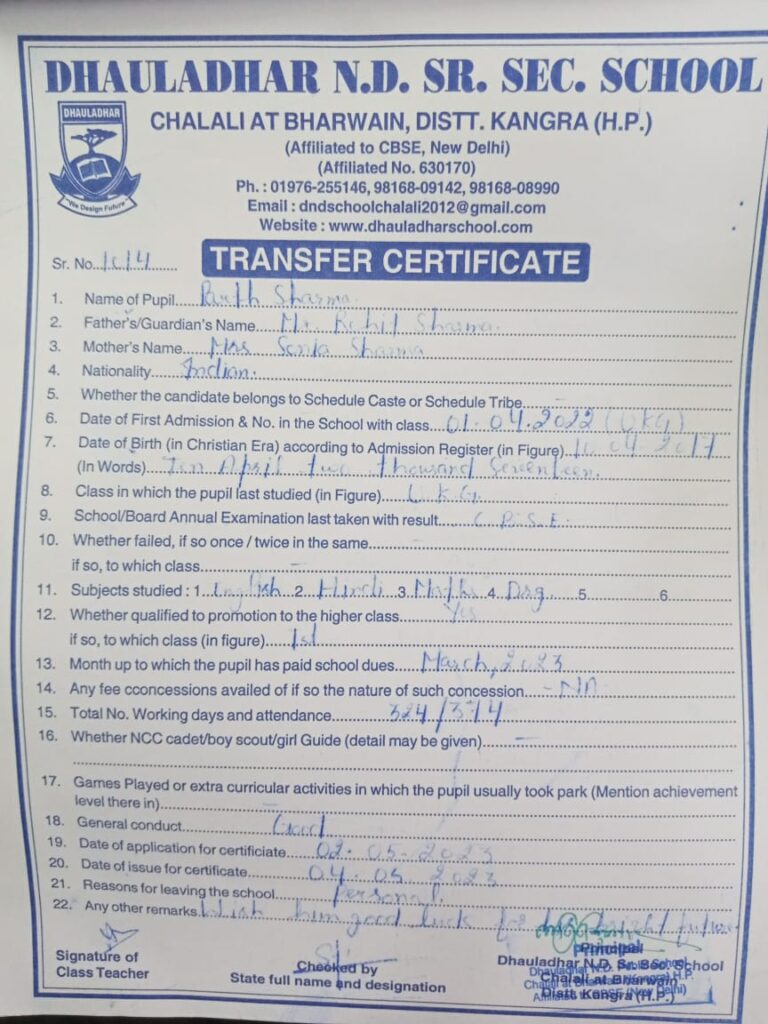 DHAULADHAR N.D. SR. SEC. SCHOOL
DHAULADHAR
"We Design Future"
CHALALI AT BHARWAIN, DISTT. KANGRA (H.P.)
(Affiliated to CBSE, New Delhi)
(Affiliated No. 630170)
Ph. : 01976-255146, 98168-09142, 98168-08990
Email : dndschoolchalali2012@gmail.com
Website : www.dhauladharschool.com
Sr. No.
TRANSFER CERTIFICATE
1. Name of Pupil Parth Sharma
2. Father's/Guardian's Name Mr. Rohit Sharma
3. Mother's Name Mrs Sonia Sharma
4. Nationality Indian.
5. Whether the candidate belongs to Schedule Caste or Schedule Tribe –
6. Date of First Admission & No. in the School with class 01.04.2022 (UKG)
7. Date of Birth (in Christian Era) according to Admission Register (in Figure) 10.04.2017
(In Words) Ten April two thousand Seventeen.
8. Class in which the pupil last studied (in Figure) U.K.G.
9. School/Board Annual Examination last taken with result C.B.S.E.
10. Whether failed, if so once / twice in the same
if so, to which class –
11. Subjects studied : 1 English 2 Hindi 3 Maths 4 Drg. 5 6
12. Whether qualified to promotion to the higher class Yes
if so, to which class (in figure) 1st
13. Month up to which the pupil has paid school dues March, 2023
14. Any fee cconcessions availed of if so the nature of such concession - NA
15. Total No. Working days and attendance 324/374
16. Whether NCC cadet/boy scout/girl Guide (detail may be given) –
17. Games Played or extra curricular activities in which the pupil usually took park (Mention achievement
level there in) –
18. General conduct Good
19. Date of application for certificiate 02.05.2023
20. Date of issue for certificate 04.05.2023
21. Reasons for leaving the school Personal.
22. Any other remarks Wish him good luck for bright future
Signature of
Class Teacher
Checked by
State full name and designation
Principal
Dhauladhar N.D. Sr. Sec. School
Chalali at Bharwain
Distt. Kangra (H.P.)